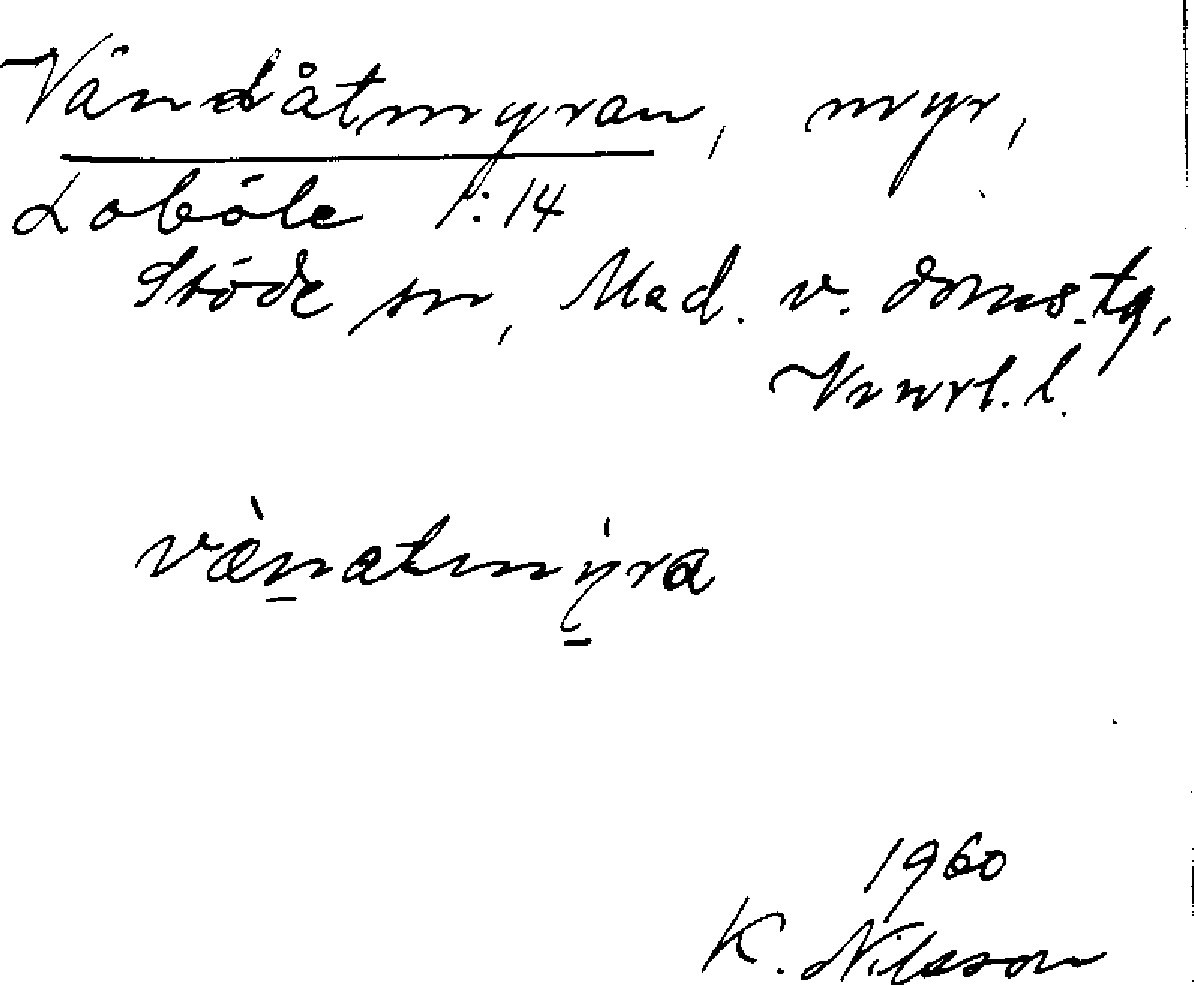 Vändåtmyran, myr,
Loböle 1:14
Stöde sn, Med. v. doms.tg,
Vnrl. l.
vænatmyra
1960
K. Nilsson